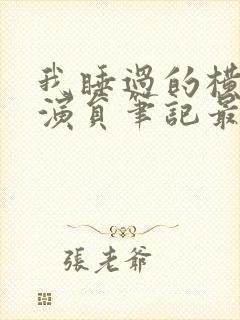 我睡過的橫
演員筆記最
張老爺